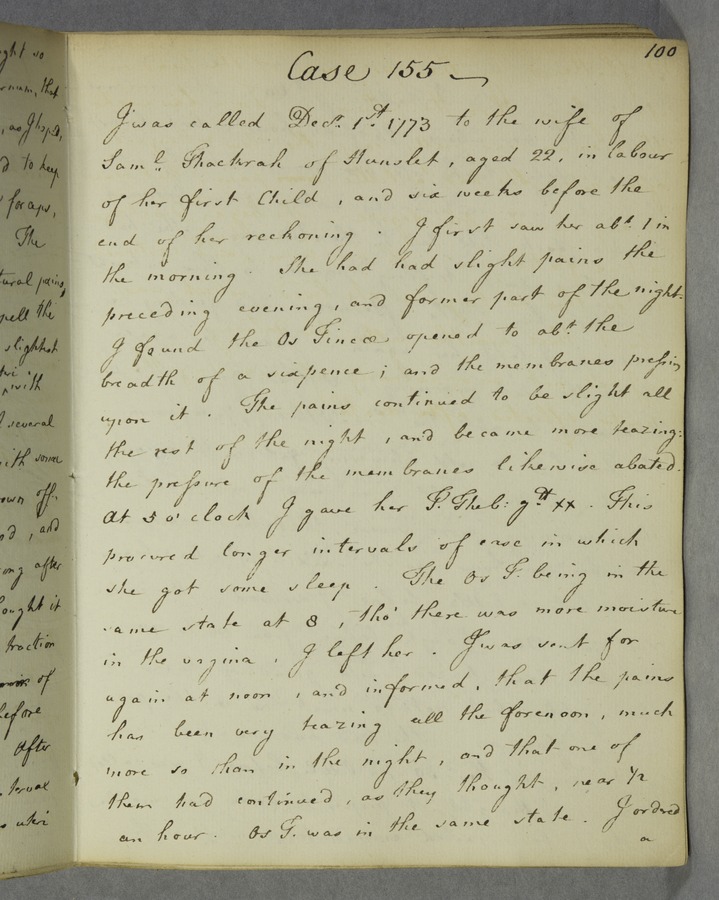 100
Case 155
I was called Decr. 1st. 1773 to the wife of
Saml. Thackrah of Hunslet, aged 22, in labour
of her first Child, and six weeks before the
end of her reckoning. I first saw her abt. 1 in
the morning. She had had slight pains the
preceding evening, and former part of the night.
I found the Os Tincæ opened to abt. the
breadth of a sixpence; and the membranes pressing
upon it. The pains continued to be slight all
the rest of the night, and became more teazing:
the pressure of the membranes likewise abated.
At 5 o'clock I gave her T. Theb: gtt xx. This
procured longer intervals of ease in which
she got some sleep. The Os T: being in the
same state at 8, tho' there was more moisture
in the vagina, I left her. I was sent for
again at noon, and informed, that the pains
has been very teazing all the forenoon, much
more so than in the night, and that one of
them had continued, as they thought, near 1/2
an hour. Os T. was in the same state. I ordered
a
ght so
rnum, that
, as I hop'd,
d to keep
forceps,
The
tural pains,
spell the
slightest
with
d several
with some
own off.
nd, and
ong after
ought it
traction
of
before
After
terval
uteri